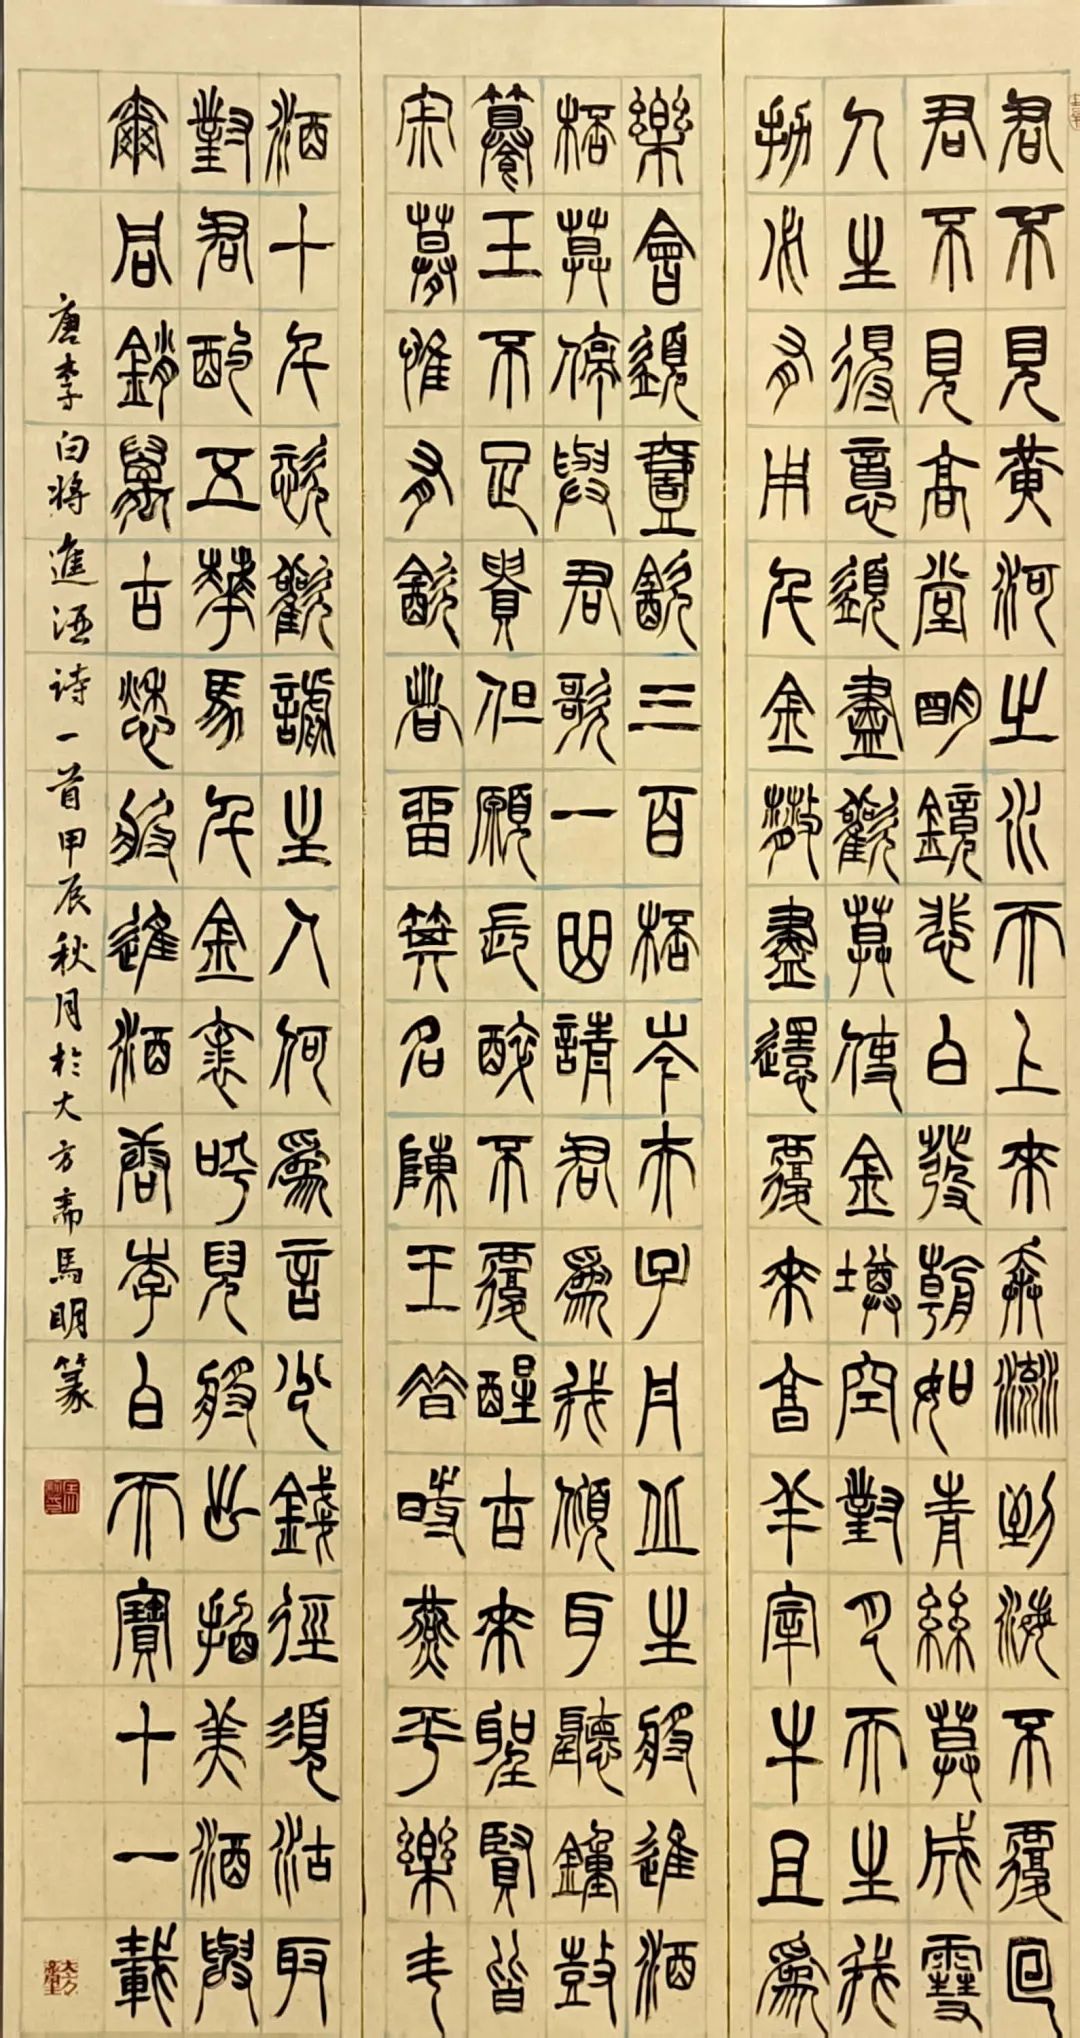 君不見黃河之水天上來奔流到海不復回
君不見高堂明鏡悲白發朝如青絲莫成雪
人生得意須盡歡莫使金墫空對月天生我
材必有用千金散盡還復來烹羊宰牛且為
樂會須壹飲三百杯岑夫子丹丘生將進酒
杯莫停與君歌一曲請君為我傾耳聽鐘鼓
饌玉不足貴但願長醉不復醒古來聖賢皆
寂寞惟有飲者留其名陳王昔時宴平樂斗
酒十千恣歡謔主人何為言少錢徑須沽取
對君酌五華馬千金裘呼兒將出換美酒與
爾同銷萬古愁將進酒唐李白天寶十一載
唐李白將進酒诗一首甲辰秋月於大方斋馬明篆